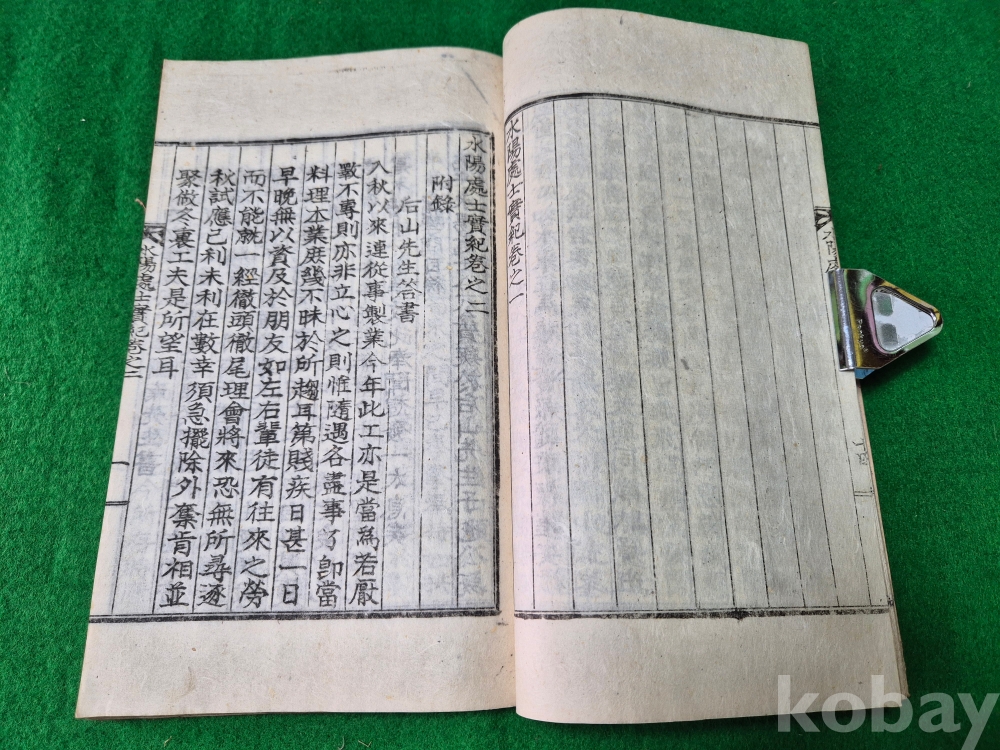 水陽處士實紀卷之一
水陽處士實紀卷之二
附錄
后山先生答書
入秋以來連從事製業今年此工亦是當爲若厭
數不專則亦非立心之則惟隨遇各盡事了卽當
料理本業庶幾不昧於所趨耳第賤疾日甚一日
早晚無以資及於朋友如左右輩徒有往來之勞
而不能就一經徹頭徹尾理會將來恐無所尋逐
秋試應已利未利在數幸須急擺除外奔肯相並
聚做冬裏工夫是所望耳
水陽處士實紀卷之二
一
kobay